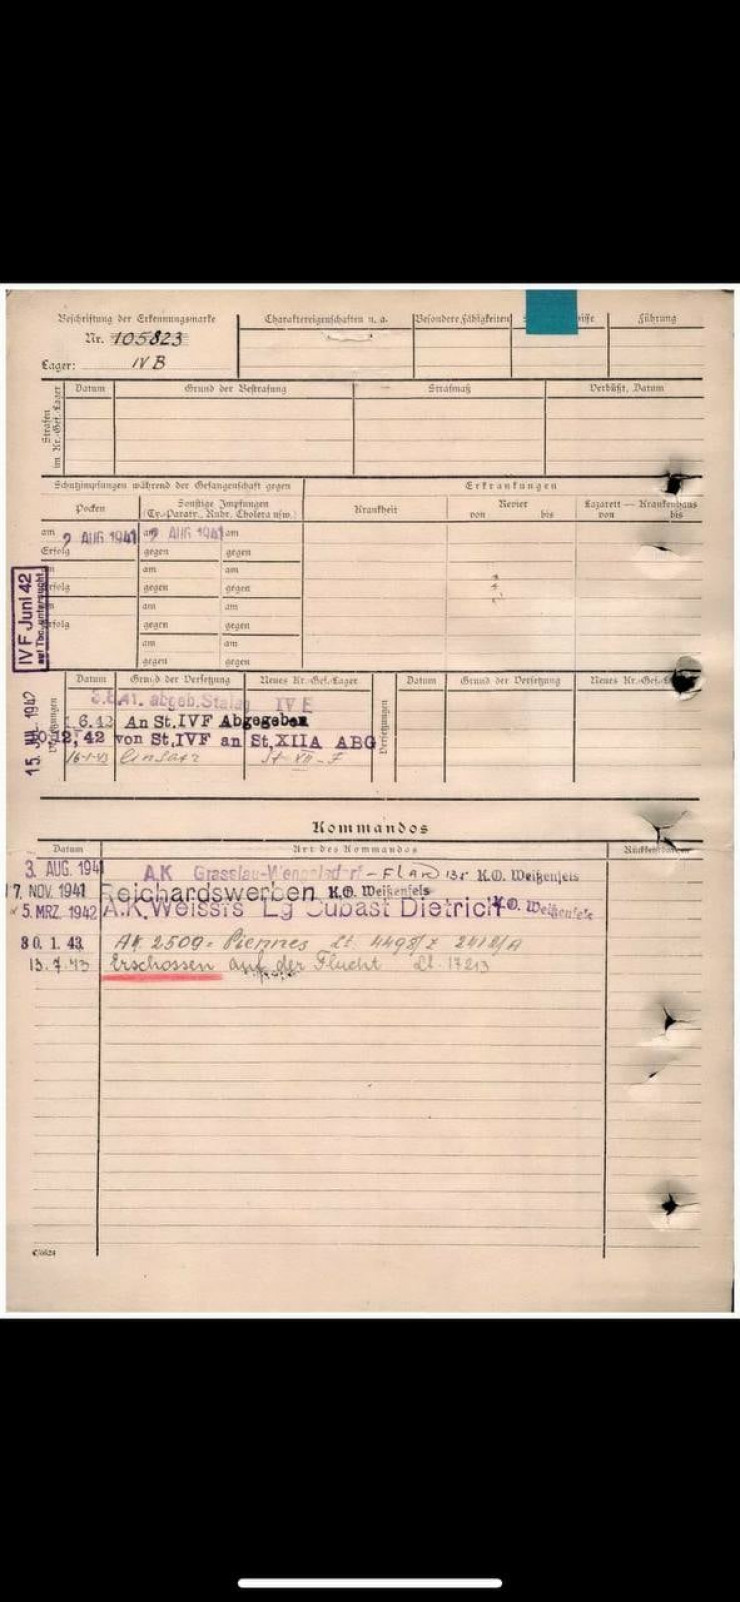 Beschriftung der Erkennungsmarke
Nr. 105823
Lager: IV B
Charaktereigenschaften u. a.
Besondere Fähigkeiten
Führung
Strafen im Kr.-Gef.-Lager
Datum Grund der Bestrafung Strafmaß Verbüßt, Datum
Schutzimpfungen während der Gefangenschaft gegen
Erkrankungen
Pocken
Sonstige Impfungen
(Ty.-Paratr., Ruhr, Cholera usw.)
Krankheit
Revier
von bis
Lazarett — Krankenhaus
von bis
am 2 AUG 1941 am 2 AUG 1941 am
Erfolg gegen gegen
am am
Erfolg gegen gegen
am am
Erfolg gegen gegen
am am
gegen gegen
IV F Juni 42
auf Tbc. untersucht
15. 1942
Versetzungen
Datum Grund der Versetzung Neues Kr.-Gef.-Lager
Versetzungen
Datum Grund der Versetzung Neues Kr.-Gef.-
abgeb. Stalag IV E
6.42 An St.IVF Abgegeben
12.42 von St.IVF an St.XIIA ABG
16-1-43 Einsatz St-XII-F
Kommandos
Datum Art des Kommandos
3. AUG. 1941 A.K K.O. Weißenfels
17. NOV. 1941 Reichardswerben K.O. Weißenfels
5. MRZ. 1942 A.K. Dietrich K.O. Weißenfels
30. 1. 43. AK 2509 Piennes Lt. 4498/z 2412/A
13.7.43 Erschossen auf der Flucht Lt. 17213
C/0624